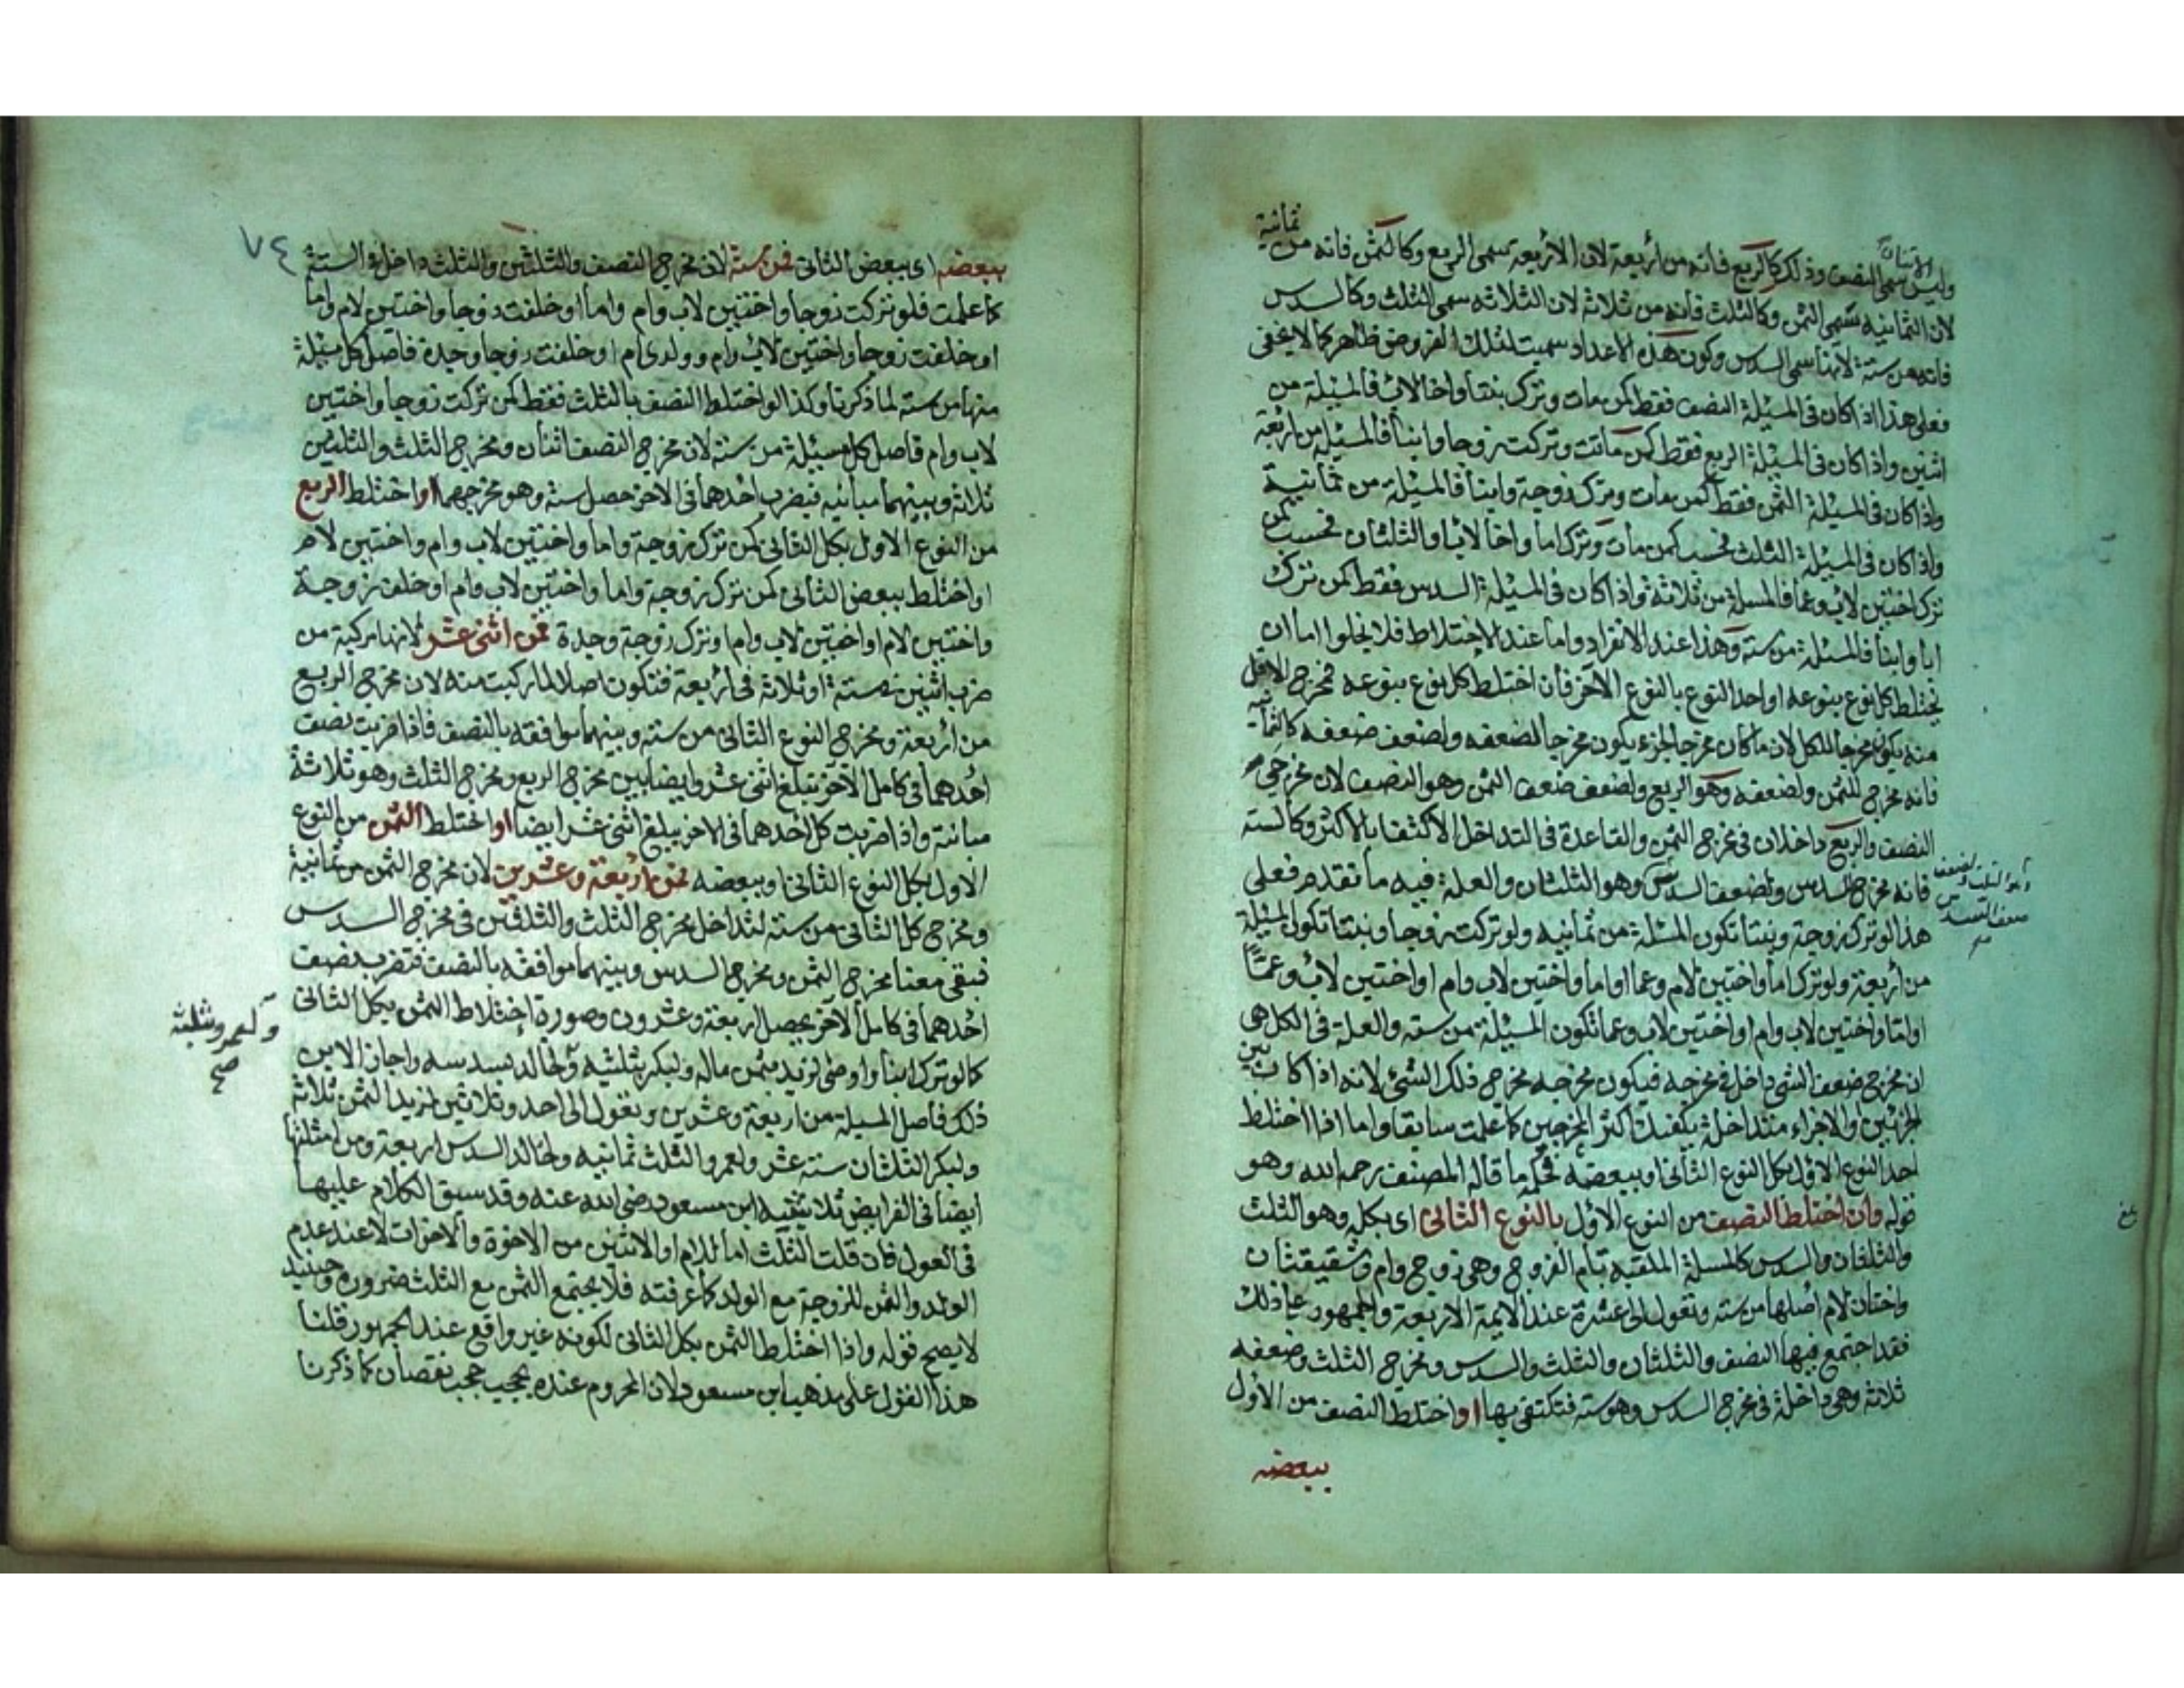 الاثنان
ثمانية
وليس سمى النصف وذلك كالربع فانه من أربعة لان الاربعه سمى الربع وكالثمن فانه من
لان الثمانيه سمى الثمن وكالثلث فانه من ثلاثة لان الثلاثه سمى الثلث وكالسدس
فانه من ستة لانها سمى السدس وكون هذه الاعداد سميت لتلك الفروض ظاهر كما لا يخفى
فعلى هذا اذا كان فى المسئلة النصف فقط كمن مات وترك بنتا واخا لاب فالمسئلة من
اثنين واذا كان فى المسئلة الربع فقط كمن ماتت وتركت زوجا وابنا فالمسئلة من اربعة
واذا كان فى المسئلة الثمن فقط كمن مات وترك زوجة وابنا فالمسئلة من ثمانية
واذا كان فى المسئلة الثلث فحسب كمن مات وترك اما واخا لاب او الثلثان فحسب كمن
ترك اختين لاب وعما فالمسلة من ثلاثة واذا كان فى المسئلة السدس فقط كمن ترك
ابا وابنا فالمسئلة من ستة وهذا عند الانفراد واما عند الاختلاط فلا يخلوا اما ان
يختلط كل نوع بنوعه او احد النوع بالنوع الآخر فان اختلط كل نوع بنوعه فمخرج الاقل
منه يكون مخرجا للكل لان ما كان مخرجا لجزء يكون مخرجا لضعفه ولضعف ضعفه كالثمانيه
فانه مخرج للثمن ولضعفه وهو الربع ولضعف ضعف الثمن وهو النصف لان مخرجى
النصف والربع داخلان فى مخرج الثمن والقاعدة فى التداخل الاكتفا بالاكثر وكالسته
فانه مخرج السدس ولضعف السدس وهو الثلثان والعلة فيه ما تقدم فعلى
وهو الثلث ولضعف
ضعف السدس
هذا لو ترك زوجة وبنتا تكون المسئلة من ثمانيه ولو تركت زوجا وبنتا تكون المسئلة
من أربعة ولو ترك اما واختين لام وعما او اما واختين لاب وام او اختين لاب وعمًا
او اما واختين لاب وام او اختين لاب وعما تكون المسئلة من سته والعلة فى الكل هى
ان مخرج ضعف الشى داخل فى مخرجه فيكون مخرجه مخرج ذلك الشئ لانه اذا كان بين
الجزئين او الاجزاء متداخلة يكفيك اكثر المخرجين كما علمت سابقا واما اذا اختلط
احد النوع الاول بكل النوع الثانى او ببعضه فحكمه ما قاله المصنف رحمه الله وهو
قوله وان اختلط النصف من النوع الاول بالنوع الثانى اى بكله وهو الثلث
والثلثان والسدس كالمسلة الملقبه بام الفروخ وهى زوج وام وشقيقتان
واختان لام اصلها من سته وتعول الى عشرة عند الايمة الاربعة والجمهور
فقد اجتمع فيها النصف والثلثان والثلث والسدس ومخرج الثلث وضعفه
ثلاثة وهى داخلة فى مخرج السدس وهو سته فتكتفى بها او اختلط النصف من الاول
ببعضه
٧٤
ببعضه اى ببعض الثانى فمن ستة لان مخرج النصف والثلثين والثلث داخل فى الستة
كما علمت فلو تركت زوجا واختين لاب وام واما او خلفت زوجا واختين لام واما
او خلفت زوجا واختين لاب وام وولدى ام او خلفت زوجا وجدة فاصل كل مسئلة
منها من سته لما ذكرنا وكذا لو اختلط النصف بالثلث فقط كمن تركت زوجا واختين
لاب وام فاصل كل مسئلة من ستة لان مخرج النصف اثنان ومخرج الثلث والثلثين
ثلاثة وبينهما مباينه فيضرب احدهما فى الاخر حصل ستة وهو مخرجهما او اختلط الربع
من النوع الاول بكل الثانى كمن ترك زوجة واما واختين لاب وام واختين لام
او اختلط ببعض الثانى كمن ترك زوجة واما واختين لاب وام او خلف زوجة
واختين لام او اختين لاب وام او ترك زوجة وجدة فمن اثنى عشر لانها مركبة من
ضرب اثنين فى ستة او ثلاثة فى أربعة فتكون اصلا لما ركبت منه لان مخرج الربع
من أربعة ومخرج النوع الثانى من سته وبينهما موافقه بالنصف فاذا ضربت نصف
أحدهما فى كامل الآخر تبلغ اثنى عشر وايضا بين مخرج الربع ومخرج الثلث وهو ثلاثة
مباينة واذا ضربت كل أحدهما فى الاخر يبلغ اثنى عشر ايضا او اختلط الثمن من النوع
الاول بكل النوع الثانى او ببعضه فمن اربعة وعشرين لان مخرج الثمن من ثمانية
ومخرج كل الثانى من ستة لتداخل مخرج الثلث والثلثين فى مخرج السدس
فبقى معنا مخرج الثمن ومخرج السدس وبينهما موافقه بالنصف فتضرب نصف
أحدهما فى كامل الآخر يحصل اربعة وعشرون وصورة اختلاط الثمن بكل الثانى
كما لو ترك ابنا واوصى لزيد بثمن ماله ولبكر بثلثيه ولخالد بسدسه واجاز الابن
ولعمرو بثلثه
صح
ذلك فاصل المسيلة من اربعة وعشرين وتعول الى احد وثلاثين لزيد الثمن ثلاثة
ولبكر الثلثان ستة عشر ولعمرو الثلث ثمانيه ولخالد السدس اربعة ومن امثلتها
ايضا فى الفرايض ثلاثينية ابن مسعود رضى الله عنه وقد سبق الكلام عليها
فى العول فان قلت الثلث اما للام او الاثنين من الاخوة والاخوات لا عند عدم
الولد والثمن للزوجة مع الولد كما عرفته فلا يجتمع الثمن مع الثلث ضرورة وحينيذ
لا يصح قوله واذا اختلط الثمن بكل الثانى لكونه غير واقع عند الجمهور قلنا
هذا القول على مذهب ابن مسعود لان المحروم عنده يحجب حجب نقصان كما ذكرنا